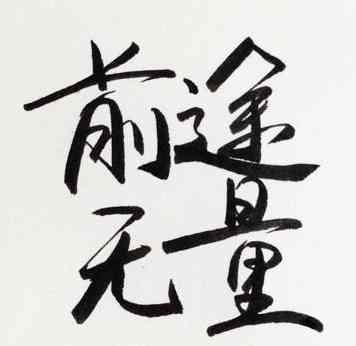 前途
无量